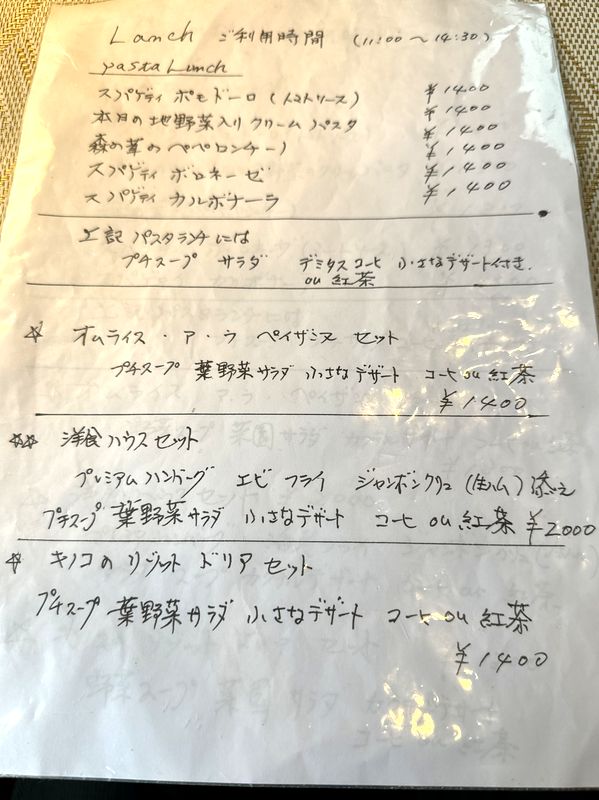 Lanch ご利用時間 (11:00〜14:30)
pasta Lunch
スパゲティ ポモドーロ (トマトソース) ¥1400
本日の地野菜入り クリームパスタ ¥1400
森の茸のペペロンチーノ ¥1400
スパゲティ ボロネーゼ ¥1400
スパゲティ カルボナーラ ¥1400
上記 パスタランチには
プチスープ サラダ デミタスコーヒ 小さなデザート付き.
ou 紅茶
☆ オムライス・ア・ラ ペイザンヌ セット
プチスープ 葉野菜サラダ 小さなデザート コーヒ ou 紅茶
¥1400
☆☆ 洋食ハウスセット
プレミアムハンバーグ エビフライ ジャンボンクリュ (生ハム) 添え
プチスープ 葉野菜サラダ 小さなデザート コーヒ ou 紅茶 ¥2000
☆ キノコのリゾット ドリア セット
プチスープ 葉野菜サラダ 小さなデザート コーヒ ou 紅茶
¥1400